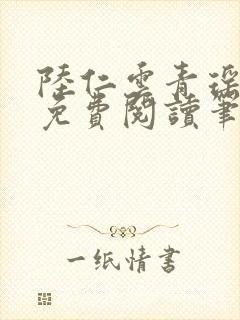 陸仁雲青瑤
免費閱讀筆
一纸情書